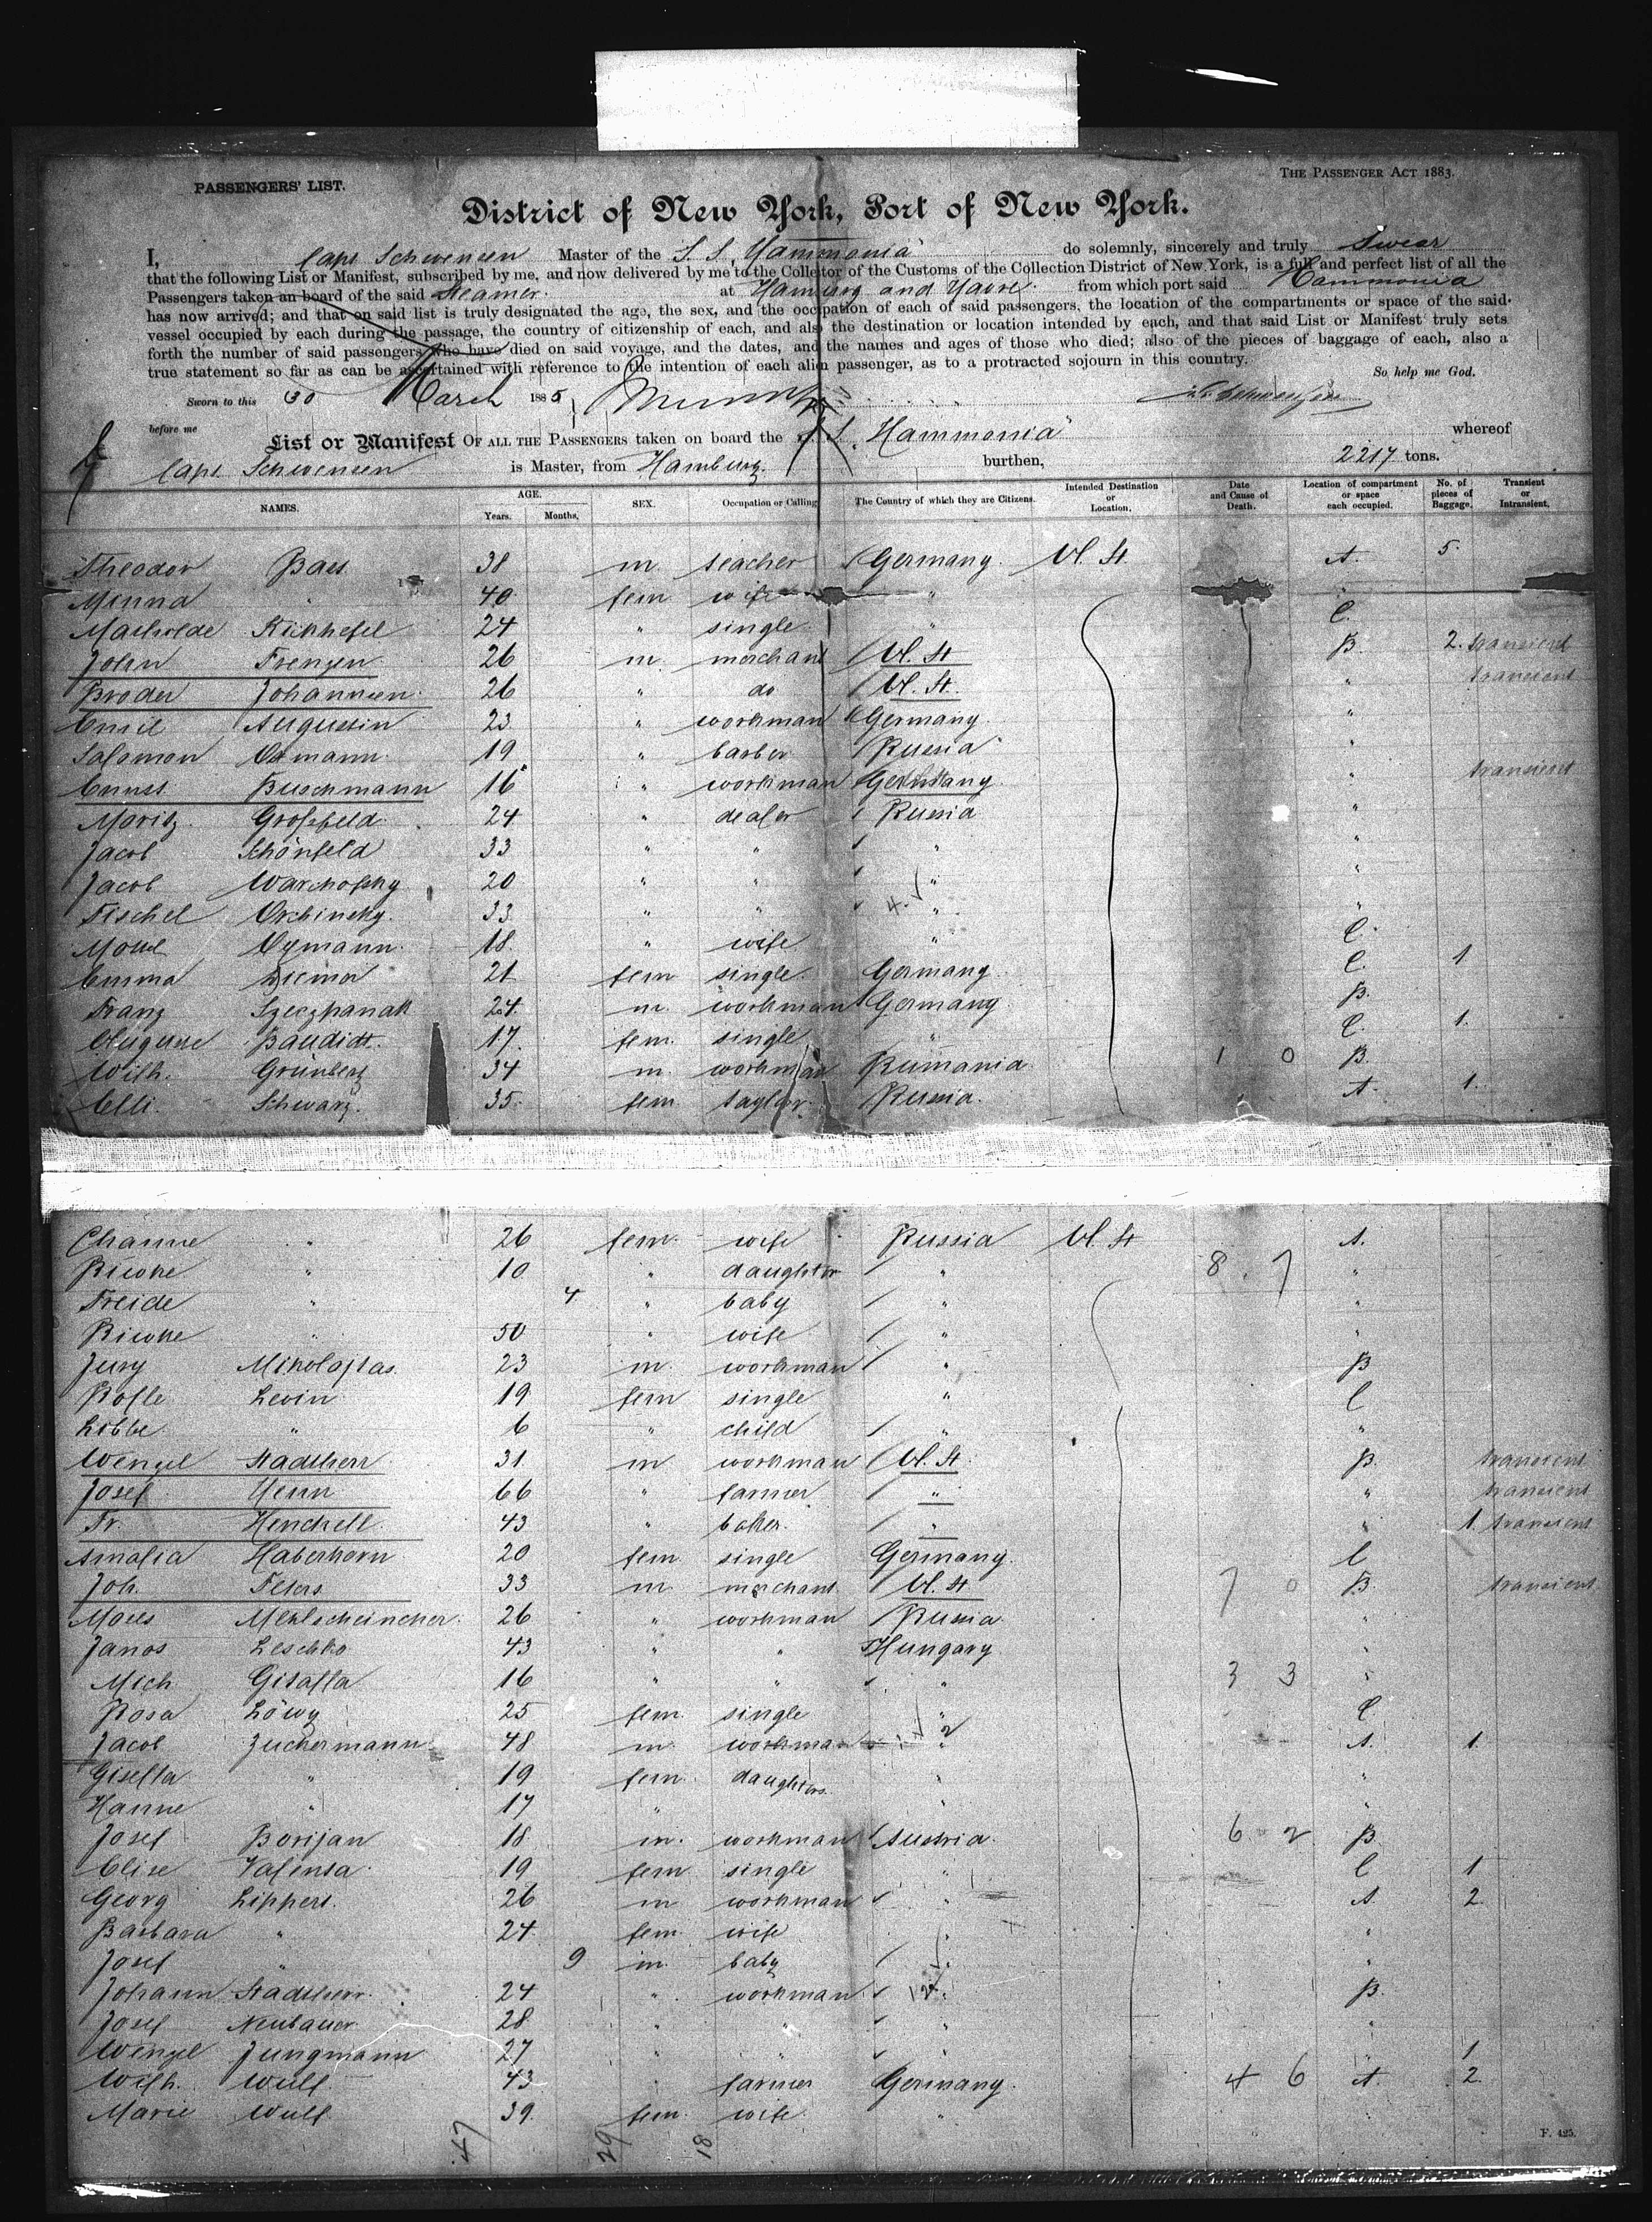 PASSENGERS' LIST.
THE PASSENGER ACT 1883.
District of New York, Port of New York.
I, Capt Schwensen Master of the S. S. Hammonia do solemnly, sincerely and truly swear
that the following List or Manifest, subscribed by me, and now delivered by me to the Collector of the Customs of the Collection District of New York, is a full and perfect list of all the
Passengers taken on board of the said Steamer at Hamburg and Havre from which port said Hammonia
has now arrived; and that on said list is truly designated the age, the sex, and the occupation of each of said passengers, the location of the compartments or space of the said
vessel occupied by each during the passage, the country of citizenship of each, and also the destination or location intended by each, and that said List or Manifest truly sets
forth the number of said passengers who have died on said voyage, and the dates, and the names and ages of those who died; also of the pieces of baggage of each, also a
true statement so far as can be ascertained with reference to the intention of each alien passenger, as to a protracted sojourn in this country.
So help me God.
Sworn to this 30 March 1885
before me
List or Manifest OF ALL THE PASSENGERS taken on board the S. S. Hammonia whereof
Capt. Schwensen is Master, from Hamburg. burthen, 2217 tons.
NAMES. AGE. Years. Months. SEX. Occupation or Calling The Country of which they are Citizens. Intended Destination or Location. Date and Cause of Death. Location of compartment or space each occupied. No. of pieces of Baggage. Transient or Intransient.
Theodor Baes 38 m teacher Germany. U. St. A. 5.
Minna " 40 fem wife " "
Mathilde 24 " single " C.
John Frenzen 26 m merchant U. St B. 2. transient
Broder Johannsen 26 " do U. St. " transient
Emil Augustin 23 " workman Germany. "
Salomon 19 " barber Russia "
Ernst Buschmann 16 " workman Germany. " transient
Moritz Grossfeld 24 " dealer Russia "
Jacob Schönfeld 33 " " " "
Jacob Warchofsky 20 " " " "
Fischel 33 " " " "
18 " wife " C.
Emma 21 fem single Germany C. 1
Franz Szczepanak 24 m. workman Germany B.
Auguste Baudidt. 17. fem. single " C. 1.
Wilh. Grünberg 34 m. workman Rumania 1 0 B.
Elli Schwarz. 35. fem taylor Russia. A. 1.
Channe " 26 fem. wife Russia U. St A.
Riwke " 10 " daughter " 8. 7 "
Freide " 4 " baby " "
Riwke " 50 " wife " "
Jury Mikolajtas. 23 m workman " B
Levin 19 fem single " C
Libbe " 6 " child " "
Wenzel Stadtherr 31 m workman U. St. B. transient
Josef Henn 66 " farmer " " transient
Fr. Henckell 43 " baker. " " 1. transient
Amalia Haberkorn 20 fem single Germany. C
Joh. Peters 33 m merchant U. St 7 0 B. transient
Moses 26 " workman Russia "
Janos Leschko 43 " " Hungary "
Mich Gisalla 16 " " " 3 3 "
Rosa Löwy 25 fem. single " C.
Jacob Zuckermann 48 m. workman " A. 1.
Gisella " 19 fem. daughters " "
Hanne " 17 " " "
Josef Borijan 18 m. workman Austria 6 2 B
Elise Valensa 19 fem single " C 1
Georg Lippert. 26 m workman " A 2
Barbara " 24. fem wife " "
Josef " 9 m. baby " "
Johann Stadtherr. 24 " workman " B.
Josef Neubauer 28 " " " "
Wenzel Jungmann 27 " " " " 1
Wilh. Wulf. 43 " farmer Germany. 4 6 A. 2.
Marie Wulf 39. fem. wife "
47 29 18
F. 425.